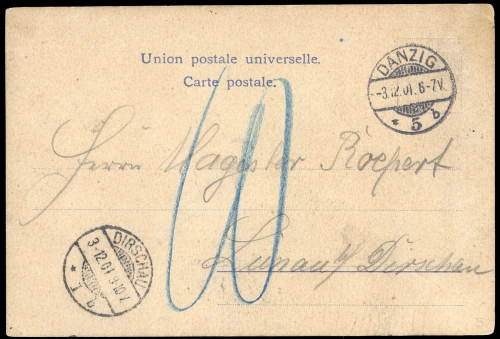 Union postale universelle.
Carte postale.
DANZIG
-3.12.01.6-7V.
* 5 b
Herrn Magister Röepert
10
Lunau b/ Dirschau
DIRSCHAU
3-12.01 9-10V
* 1 b